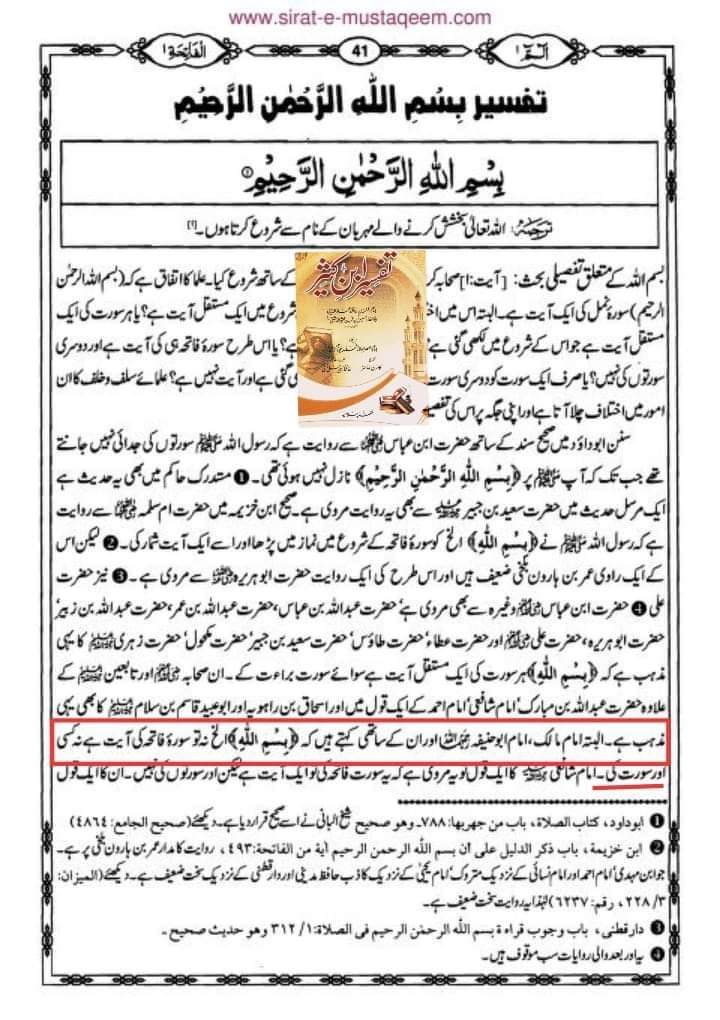 www.sirat-e-mustaqeem.com
الٓمّٓ ١
41
اَلْفَاتِحَة ١
تفسیر بِسْمِ اللّٰهِ الرَّحْمٰنِ الرَّحِيْمِ
بِسْمِ اللّٰهِ الرَّحْمٰنِ الرَّحِيْمِ ①
ترجمہ: اللہ تعالیٰ بخشش کرنے والے مہربان کے نام سے شروع کرتا ہوں۔ [۱]
تفسیر ابن کثیر
بسم اللہ کے متعلق تفصیلی بحث: [آیت:۱] صحابہ کر کے ساتھ شروع کیا۔ علما کا اتفاق ہے کہ (بسم اللہ الرحمٰن
الرحیم) سورۂ نمل کی ایک آیت ہے۔ البتہ اس میں اخ شروع میں ایک مستقل آیت ہے؟ یا ہر سورت کی ایک
مستقل آیت ہے جو اس کے شروع میں لکھی گئی ہے ہے؟ یا اس طرح سورۂ فاتحہ ہی کی آیت ہے اور دوسری
سورتوں کی نہیں؟ یا صرف ایک سورت کو دوسری سورت گئی ہے اور آیت نہیں ہے؟ علمائے سلف و خلف کا ان
امور میں اختلاف چلا آتا ہے اور اپنی جگہ پر اس کی تفصی
سنن ابو داؤد میں صحیح سند کے ساتھ حضرت ابن عباس رضی اللہ عنہما سے روایت ہے کہ رسول اللہ ﷺ سورتوں کی جدائی نہیں جانتے
تھے جب تک کہ آپ ﷺ پر ﴿بِسْمِ اللّٰهِ الرَّحْمٰنِ الرَّحِيْمِ﴾ نازل نہیں ہوئی تھی۔ ❶ مستدرک حاکم میں بھی یہ حدیث ہے
ایک مرسل حدیث میں حضرت سعید بن جبیر سے بھی یہ روایت مروی ہے۔ صحیح ابن خزیمہ میں حضرت ام سلمہ رضی اللہ عنہا سے روایت
ہے کہ رسول اللہ ﷺ نے ﴿بِسْمِ اللّٰهِ﴾ الخ کو سورۂ فاتحہ کے شروع میں نماز میں پڑھا اور اسے ایک آیت شمار کی۔ ❷ لیکن اس
کے ایک راوی عمر بن ہارون بلخی ضعیف ہیں اور اس طرح کی ایک روایت حضرت ابو ہریرہ رضی اللہ عنہ سے مروی ہے۔ ❸ نیز حضرت
علی ❹ حضرت ابن عباس رضی اللہ عنہم وغیرہ سے بھی مروی ہے' حضرت عبداللہ بن عباس، حضرت عبداللہ بن عمر، حضرت عبداللہ بن زبیر'
حضرت ابو ہریرہ، حضرت علی رضی اللہ عنہم اور حضرت عطاء' حضرت طاؤس' حضرت سعید بن جبیر' حضرت مکحول' حضرت زہری کا یہی
مذہب ہے کہ ﴿بِسْمِ اللّٰهِ﴾ ہر سورت کی ایک مستقل آیت ہے سوائے سورت براءت کے۔ ان صحابہ رضی اللہ عنہم اور تابعین کے
علاوہ حضرت عبداللہ بن مبارک' امام شافعی' امام احمد کے ایک قول میں اور اسحاق بن راہویہ اور ابو عبید قاسم بن سلام کا بھی یہی
مذہب ہے۔ البتہ امام مالک، امام ابو حنیفہ اور ان کے ساتھی کہتے ہیں کہ ﴿بِسْمِ اللّٰهِ﴾ الخ نہ تو سورۂ فاتحہ کی آیت ہے نہ کسی
اور سورت کی۔ امام شافعی کا ایک قول تو یہ مروی ہے کہ یہ سورت فاتحہ کی تو ایک آیت ہے لیکن اور سورتوں کی نہیں۔ ان کا ایک قول
❶ ابوداود، کتاب الصلاة، باب من جهربها: ۷۸۸۔ وهو صحیح شیخ البانی نے اسے صحیح قرار دیا ہے۔ دیکھئے (صحیح الجامع: ۴۸۶۴)
❷ ابن خزیمة، باب ذکر الدلیل علی ان بسم الله الرحمن الرحیم آیة من الفاتحة: ۴۹۳، روایت کا مدار عمر بن ہارون بلخی پر ہے۔
جو ابن مہدی' امام احمد اور امام نسائی کے نزدیک متروک' امام یحییٰ کے نزدیک کاذب حافظ مدینی اور دارقطنی کے نزدیک سخت ضعیف ہے۔ دیکھئے (المیزان:
۳/ ۲۲۸، رقم: ۶۲۳۷) لہٰذا یہ روایت سخت ضعیف ہے۔
❸ دارقطنی، باب وجوب قراءة بسم الله الرحمٰن الرحیم فی الصلاة: ۱/ ۳۱۲ وهو حدیث صحیح۔
❹ یہ اور بعد والی روایات سب موقوف ہیں۔